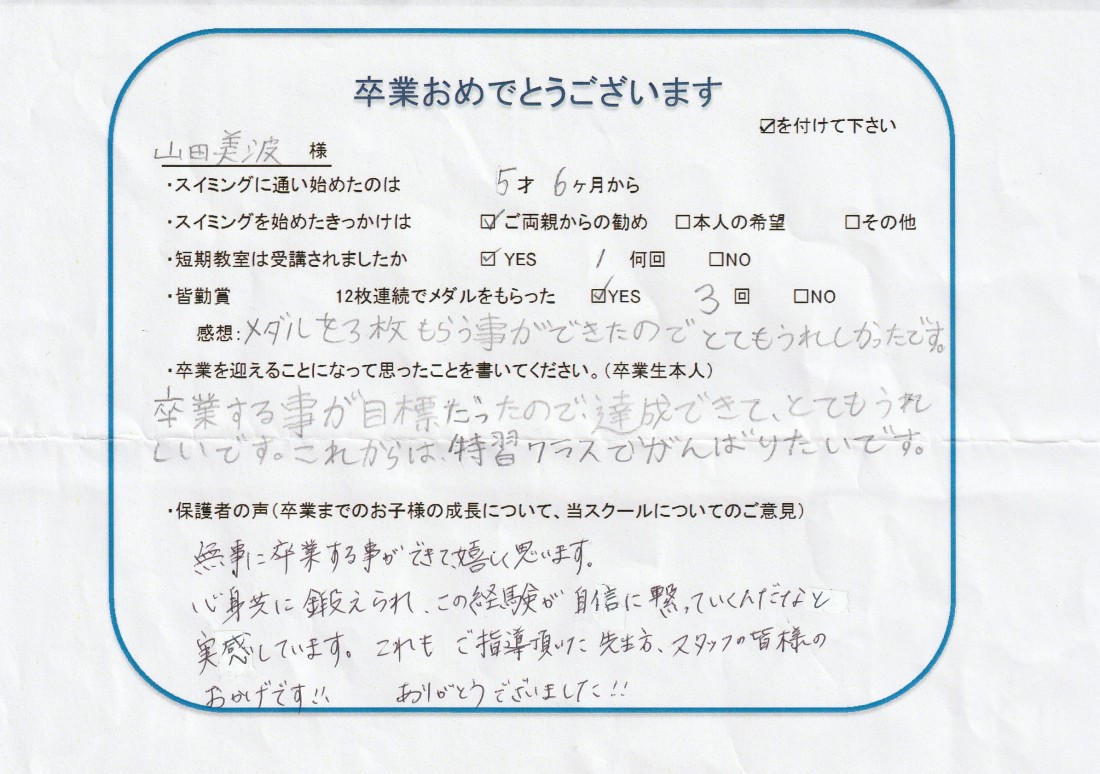 卒業おめでとうございます
☑を付けて下さい
山田美波 様
・スイミングに通い始めたのは 5才 6ヶ月から
・スイミングを始めたきっかけは ☑ご両親からの勧め □本人の希望 □その他
・短期教室は受講されましたか ☑YES 1 何回 □NO
・皆勤賞 12枚連続でメダルをもらった ☑YES 3 回 □NO
感想:メダルを3枚もらう事ができたのでとてもうれしかったです。
・卒業を迎えることになって思ったことを書いてください。(卒業生本人)
卒業する事が目標だったので、達成できて、とてもうれ
しいです。これからは、特習クラスでがんばりたいです。
・保護者の声(卒業までのお子様の成長について、当スクールについてのご意見)
無事に卒業する事ができて、嬉しく思います。
心身共に鍛えられ、この経験が自信に繋っていくんだなと
実感しています。これも ご指導頂いた先生方、スタッフの皆様の
おかげです!! ありがとうございました!!